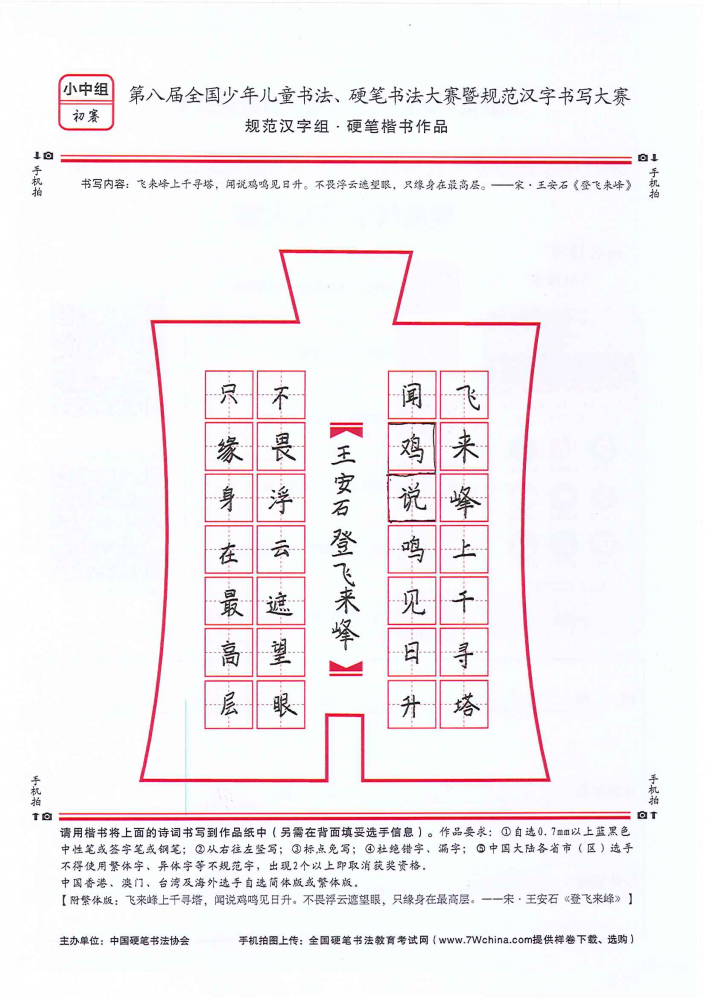 小中组
初赛
第八届全国少年儿童书法、硬笔书法大赛暨规范汉字书写大赛
规范汉字组·硬笔楷书作品
手机拍
手机拍
书写内容：飞来峰上千寻塔，闻说鸡鸣见日升。不畏浮云遮望眼，只缘身在最高层。——宋·王安石《登飞来峰》
飞来峰上千寻塔
闻鸡说鸣见日升
王安石登飞来峰
不畏浮云遮望眼
只缘身在最高层
手机拍
手机拍
请用楷书将上面的诗词书写到作品纸中（另需在背面填妥选手信息）。作品要求：①自选0.7mm以上蓝黑色
中性笔或签字笔或钢笔；②从右往左竖写；③标点免写；④杜绝错字、漏字；⑤中国大陆各省市（区）选手
不得使用繁体字、异体字等不规范字，出现2个以上即取消获奖资格。
中国香港、澳门、台湾及海外选手自选简体版或繁体版。
【附繁体版：飞来峰上千寻塔，闻说鸡鸣见日升。不畏浮云遮望眼，只缘身在最高层。——宋·王安石《登飞来峰》】
主办单位：中国硬笔书法协会 手机拍图上传：全国硬笔书法教育考试网（www.7Wchina.com提供样卷下载、选购）